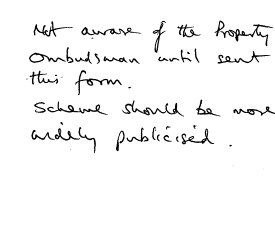 Not aware of the Property
Ombudsman until sent
this form.
Scheme should be more
widely publicised.